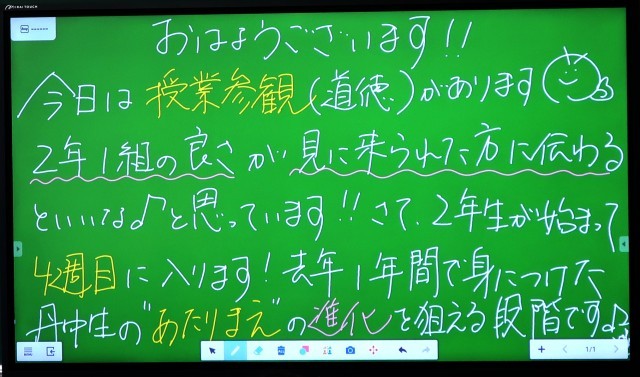 おはようございます!!
今日は授業参観(道徳)があります
2年1組の良さが見に来られた方に伝わる
といいな♪と思っています!!さて、2年生が始まって
4週目に入ります!去年1年間で身につけた
丹中生の"あたりまえ"の進化を狙える段階です♪
1/1